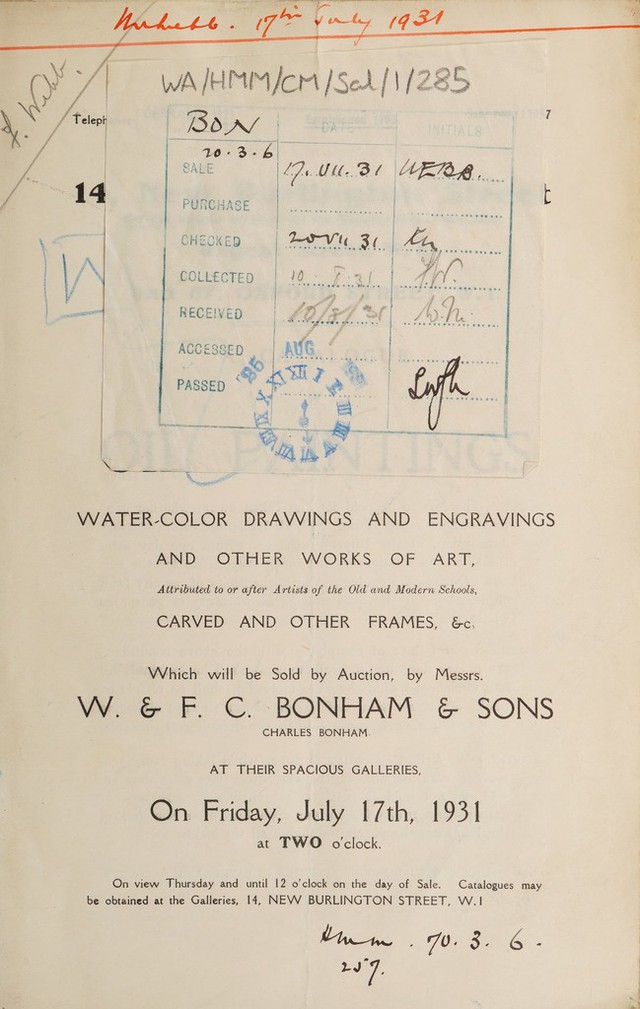 17th July 1931
F. Webb.
WA/HMM/CM/Sal/1/285
Teleph
7
BON
DATE
INITIALS
20.3.6
SALE 17.VII.31 WEBB.
14
t
PURCHASE
CHECKED 20 VII 31
W
COLLECTED 10 31 FW.
RECEIVED 10/8/31
ACCESSED
AUG
PASSED
XII I II III V VI VII VIII IX X XI
OIL PAINTINGS
WATER-COLOR DRAWINGS AND ENGRAVINGS
AND OTHER WORKS OF ART,
Attributed to or after Artists of the Old and Modern Schools,
CARVED AND OTHER FRAMES, &c.
Which will be Sold by Auction, by Messrs.
W. & F. C. BONHAM & SONS
CHARLES BONHAM
AT THEIR SPACIOUS GALLERIES,
On Friday, July 17th, 1931
at TWO o'clock.
On view Thursday and until 12 o'clock on the day of Sale. Catalogues may
be obtained at the Galleries, 14, NEW BURLINGTON STREET, W.1
Hmm. 70.3.6.
257.